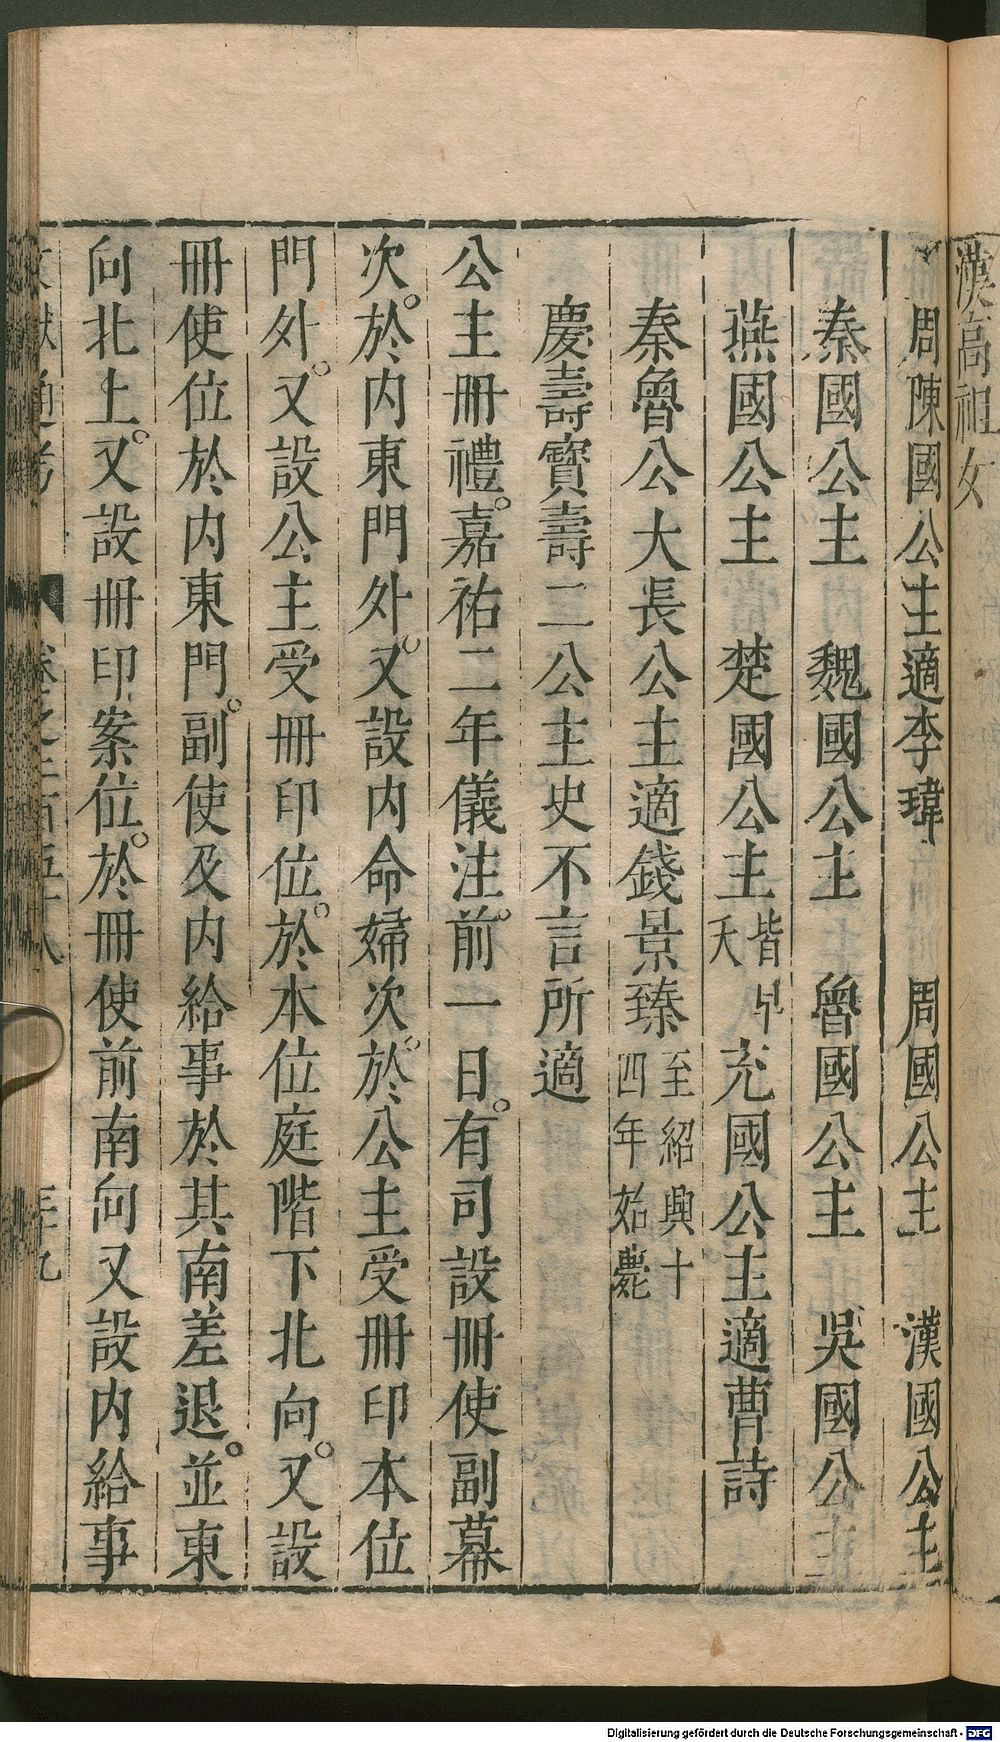 漢高祖女
周陳國公主適李瑋　周國公主　漢國公主
秦國公主　魏國公主　魯國公主　吳國公主
燕國公主　楚國公主皆早夭充國公主適曹詩
秦魯公大長公主適錢景臻至紹興十四年始薨
慶壽寶壽二公主史不言所適
公主冊禮。嘉祐二年儀注。前一日。有司設冊使副幕
次。於内東門外。又設内命婦次。於公主受冊印本位
門外。又設公主受冊印位。於本位庭階下北向。又設
冊使位於内東門。副使及内給事於其南差退。並東
向北上。又設冊印案位。於冊使前南向又設内給事
文獻通考　卷之二百五十八　三十九
Digitalisierung gefördert durch die Deutsche Forschungsgemeinschaft - DFG